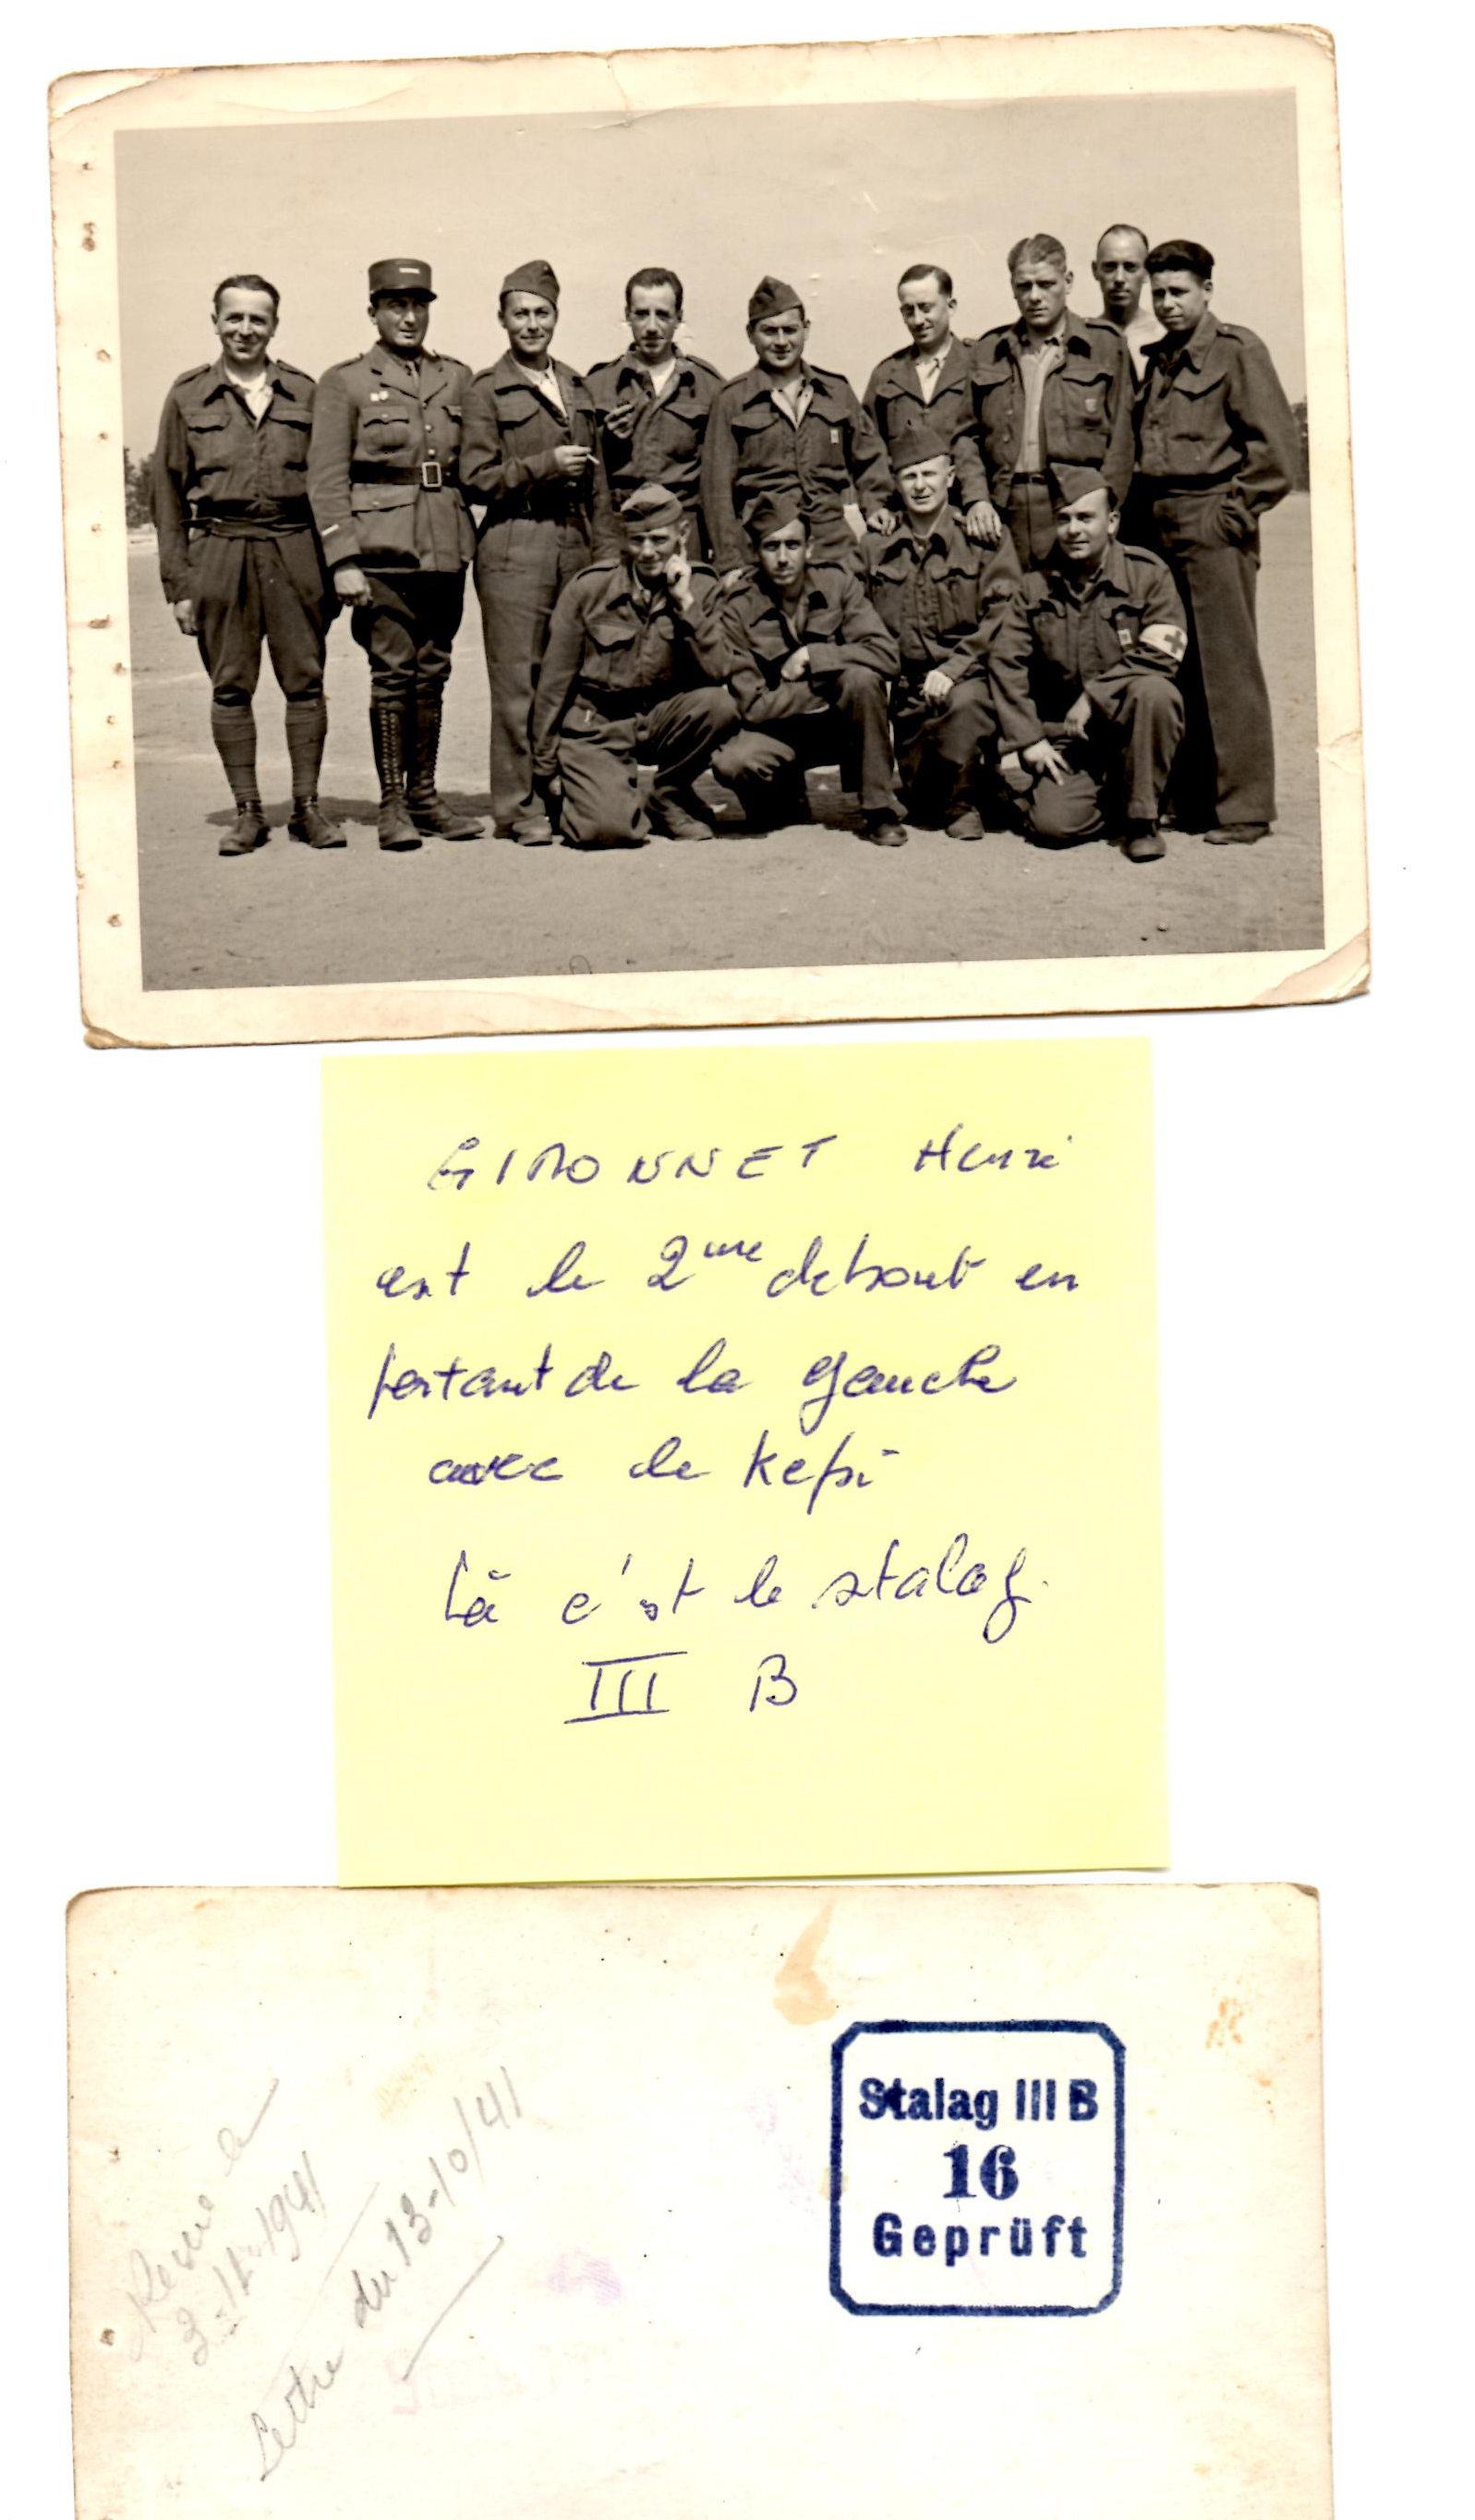 GIRONNET Henri
est le 2eme debout en
partant de la gauche
avec le Kepi
Là c'est le stalag
III B
Stalag III B
16
Geprüft
Reçue le
3-11-1941
Lettre du 13-10/41